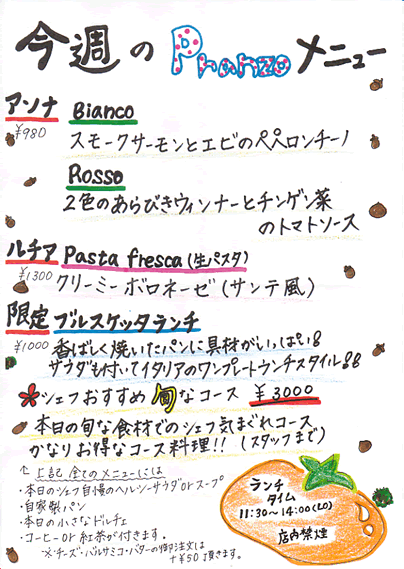 今週の Pranzo メニュー
アンナ Bianco
¥980
スモークサーモンとエビのペペロンチーノ
Rosso
2色のあらびきウィンナーとチンゲン菜
のトマトソース
ルチア Pasta fresca (生パスタ)
¥1300
クリーミーボロネーゼ(サンテ風)
限定 ブルスケッタランチ
¥1000
香ばしく焼いたパンに具材がいっぱい!!
サラダも付いてイタリアのワンプレートランチスタイル!!
シェフおすすめ 旬なコース ¥3000
本日の旬な食材でのシェフ気まぐれコース
かなりお得なコース料理!! (スタッフまで)
↑上記 全てのメニューには
・本日のシェフ自慢のヘルシーサラダorスープ
・自家製パン
・本日の小さなドルチェ
・コーヒーor 紅茶が付きます。
※チーズ・バルサミコ・バターの御注文は
+¥50 頂きます。
ランチ
タイム
11:30~14:00(LO)
店内禁煙